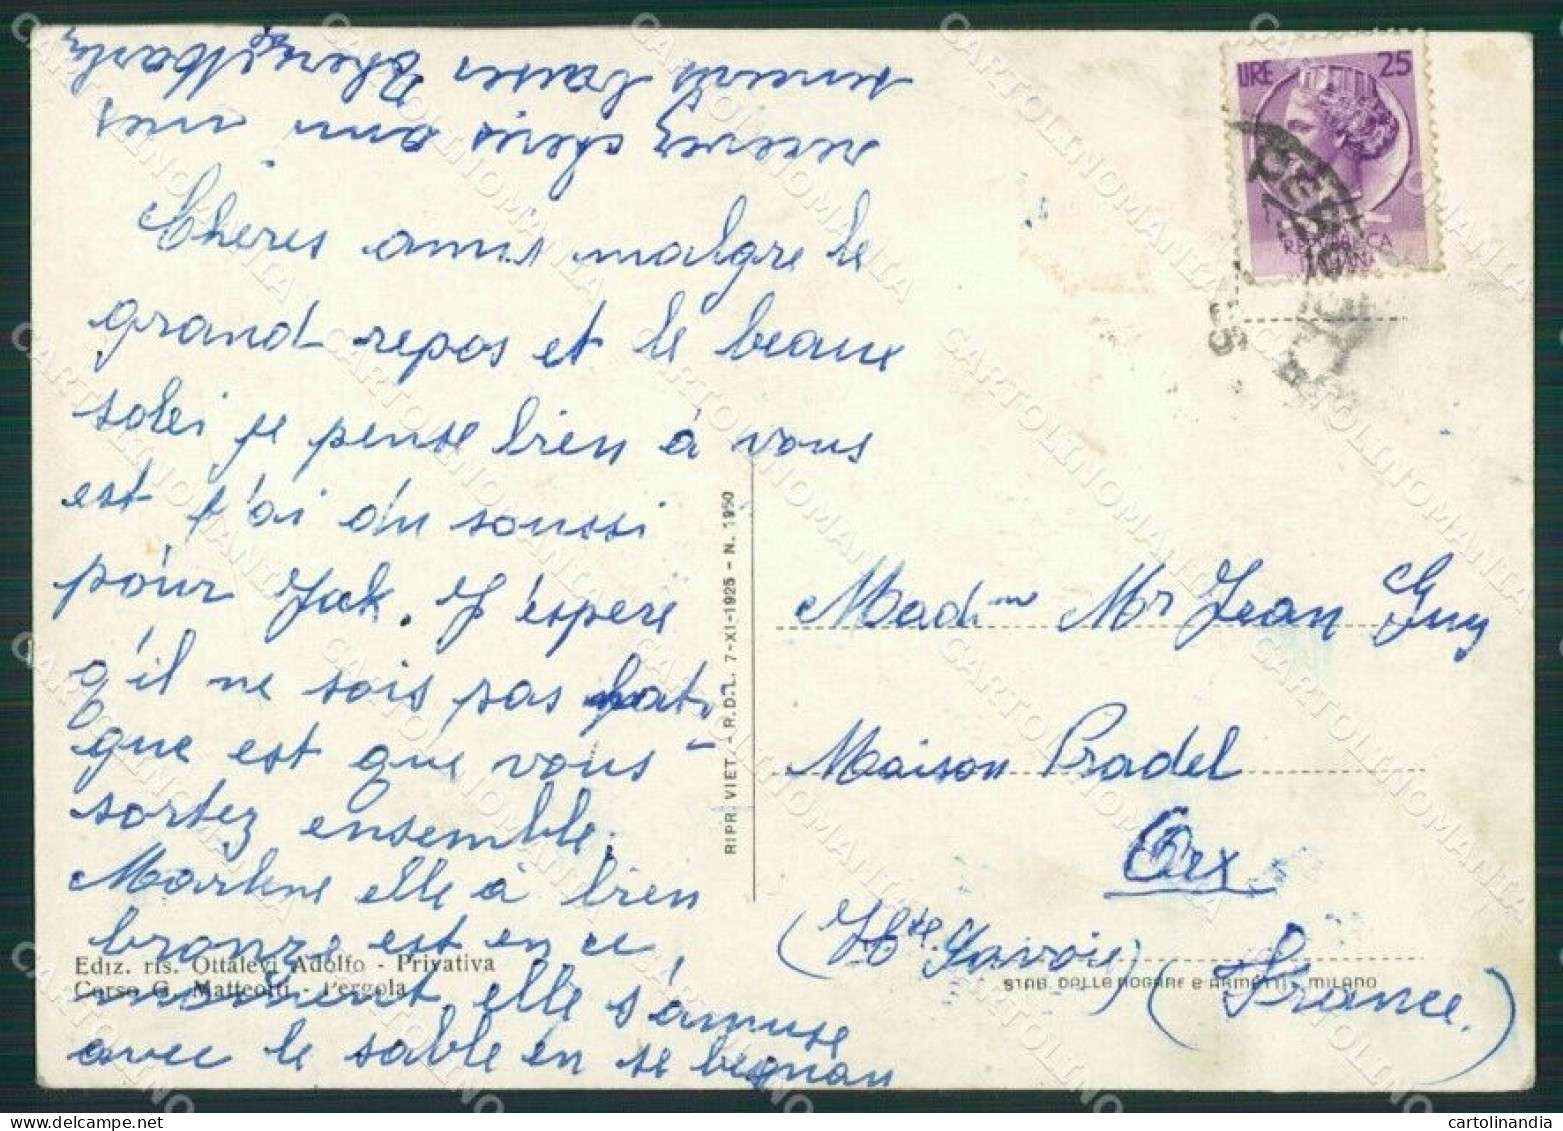 Chères amis malgre le
grand repos et le beaux
solei je pense bien à vous
est j'ai du soussi
pour Jak. J'espere
q'il ne sois pas
que est que vous
sortez ensemble.
Marlene elle à bien
bronze est en ce
moment elle s'amuse
avec le sable en se begnan
recevez chéris ami mes
baiser
Ediz. ris. Ottalevi Adolfo - Privativa
Corso G. Matteotti - Pergola
RIPR. VIET. - R.D.L. 7-XI-1925 - N. 1950
LIRE 25
REPUBBLICA
ITALIANA
Mr Jean Guy
Maison Pradel
(Hte Savoie)
(France.)
STAB. DALLE NOGARE e ARMETTI - MILANO
CARTOLINOMANIA
cartolinandia